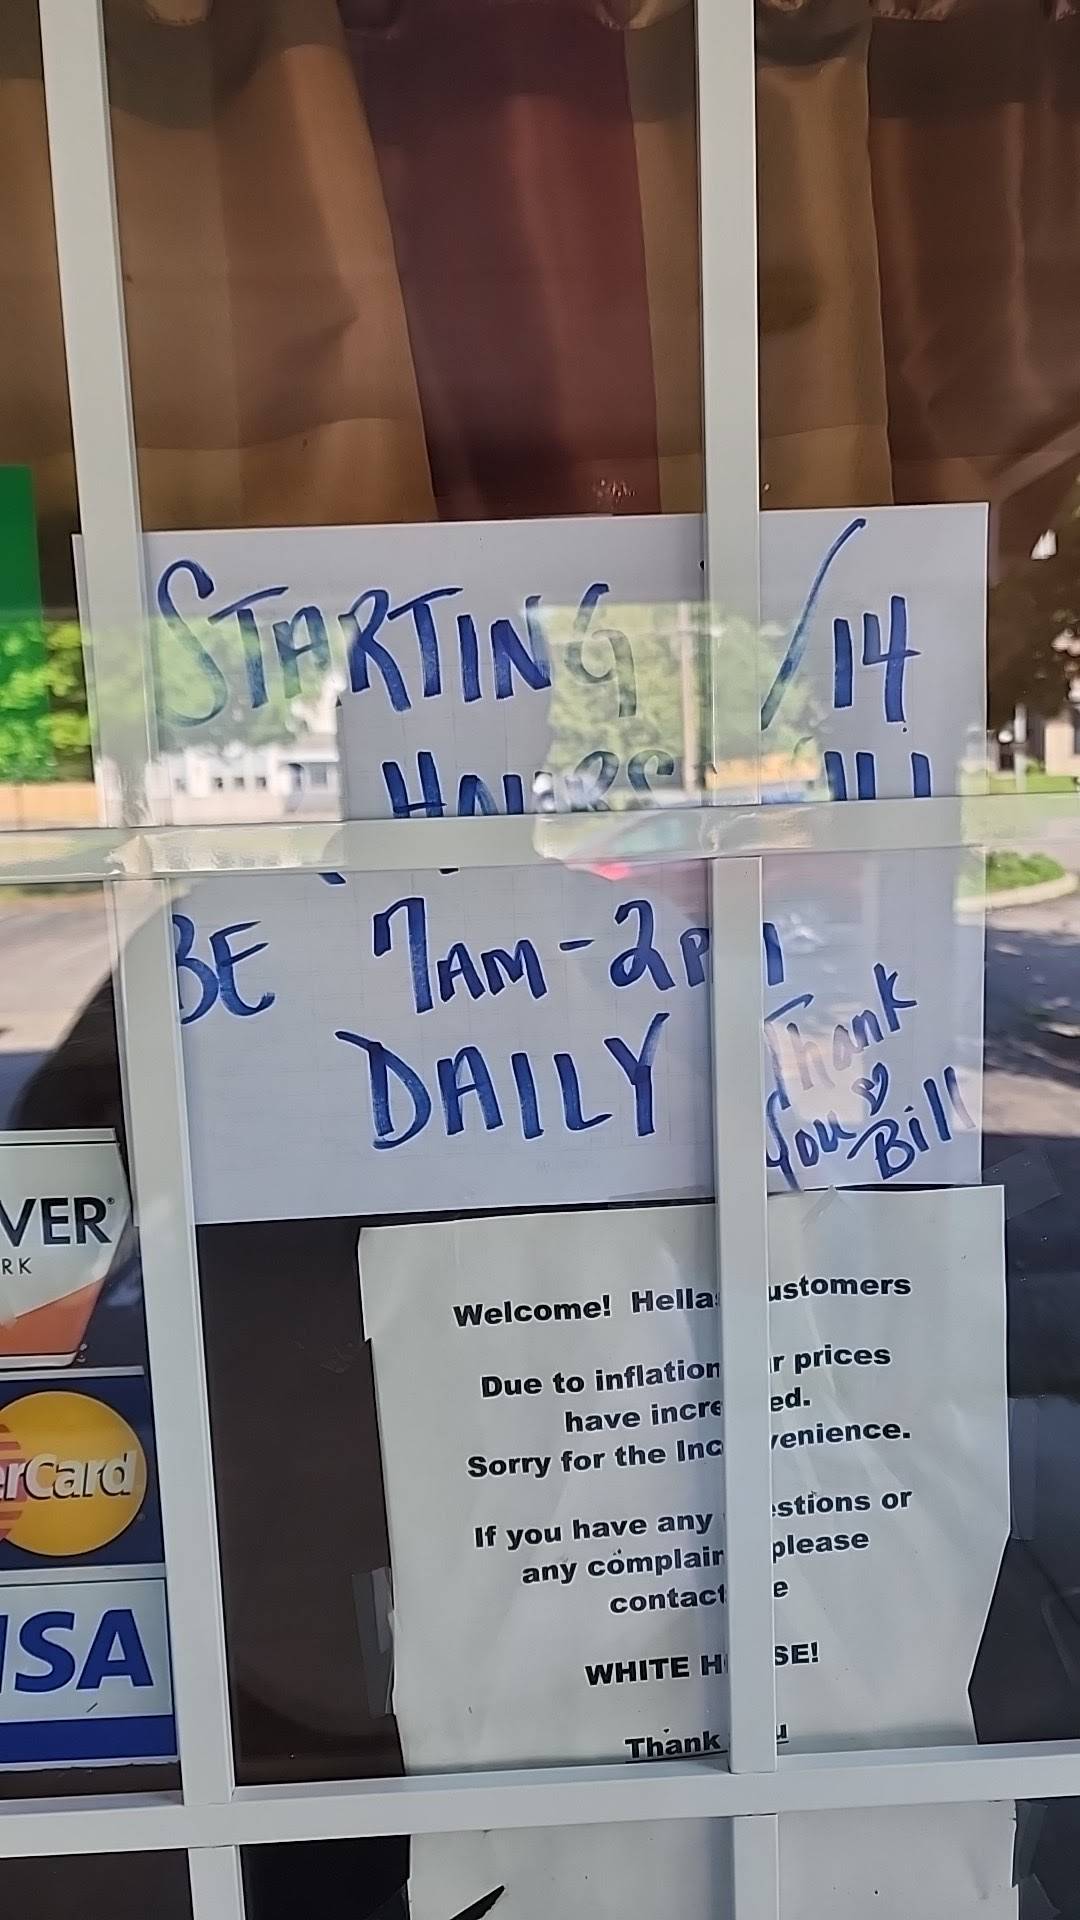 STARTING /14
HOURS
BE 7AM-2PM
DAILY
Thank
You
Bill
VER
RK
rCard
ISA
Welcome! Hella ustomers
Due to inflation r prices
have incre ed.
Sorry for the Inc venience.
If you have any estions or
any complain please
contact e
WHITE H SE!
Thank u